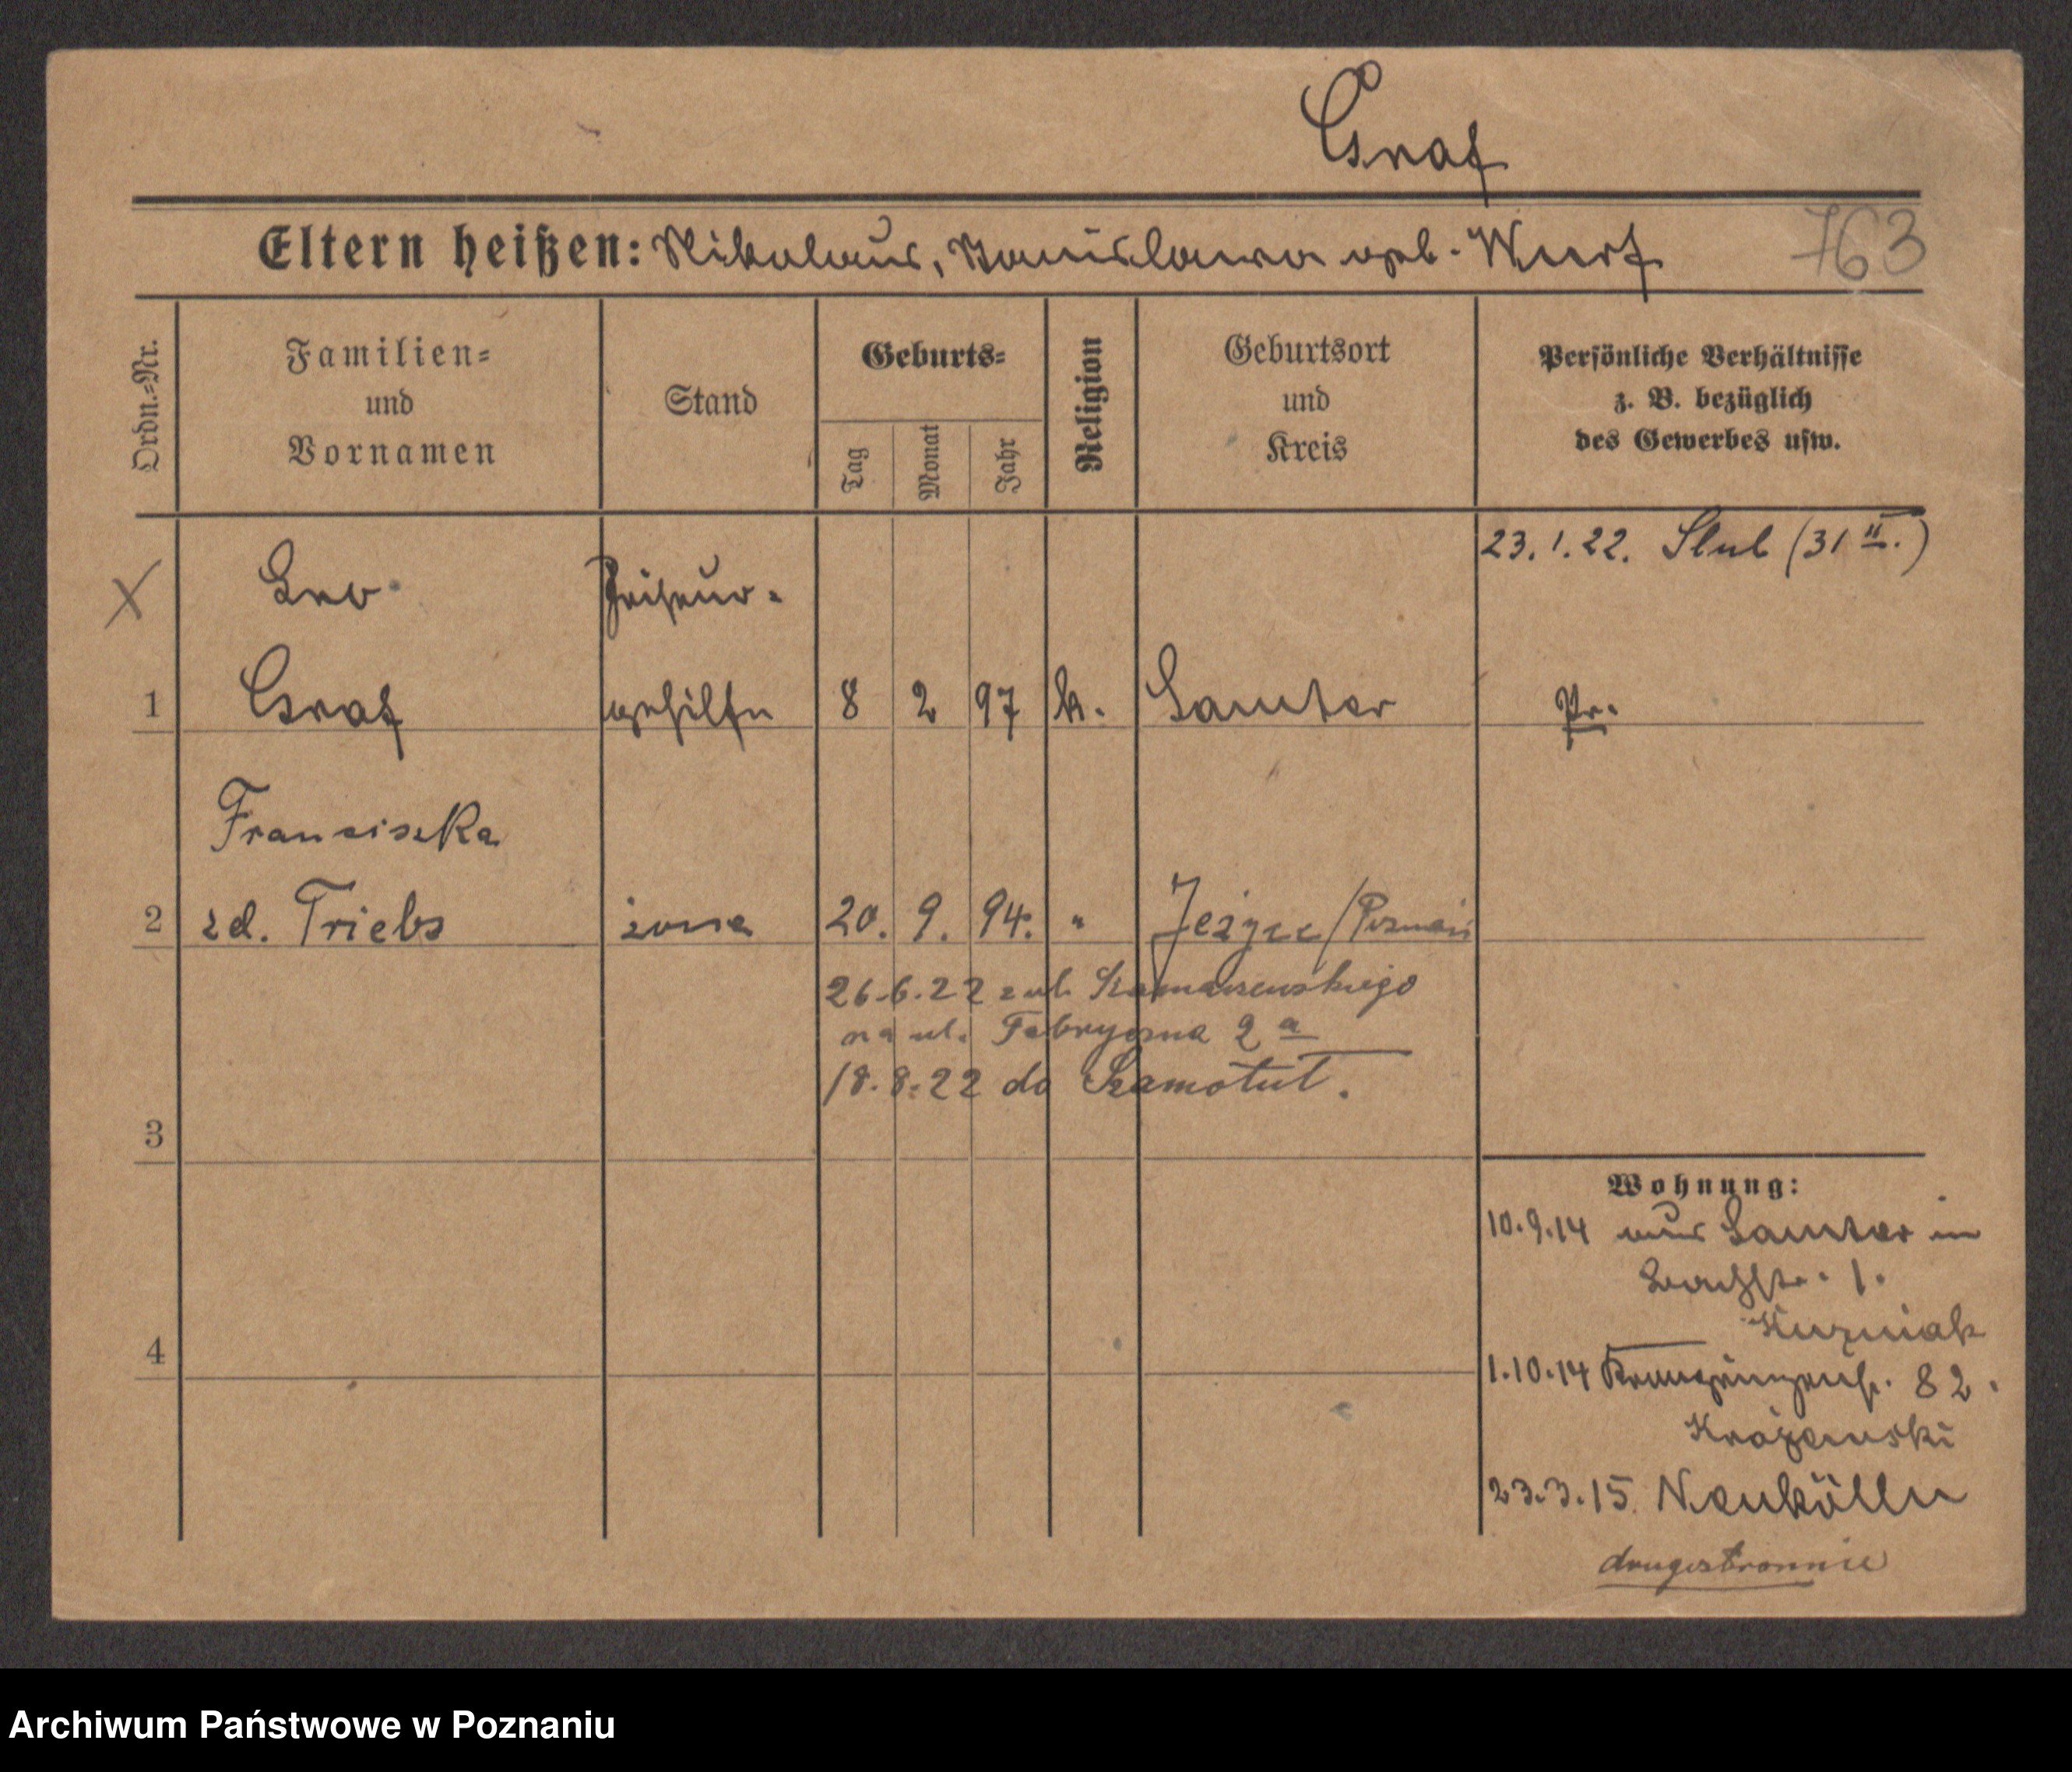 Graf
Eltern heißen: Nikolaus, Stanislawa geb. Wurf
763
Ordn.=Nr.
Familien=
und
Vornamen
Stand
Geburts=
Tag
Monat
Jahr
Religion
Geburtsort
und
Kreis
Persönliche Verhältnisse
z. B. bezüglich
des Gewerbes usw.
23.1.22. Slub (31 II.)
X
Leo Friseur-
1 Graf gehilfe 8 2 97 k. Samter Pr.
Franciszka
2 zd. Triebs żona 20. 9. 94. " Jeżyce/Poznań
26.6.22 z ul.
na ul. Fabryczna 2 a
18.8.22 do Szamotuł.
3
Wohnung:
10.9.14 aus Samter in
1.
Kuzniak
4
1.10.14 82.
23.3.15 Neukölln
drugostronnie
Archiwum Państwowe w Poznaniu